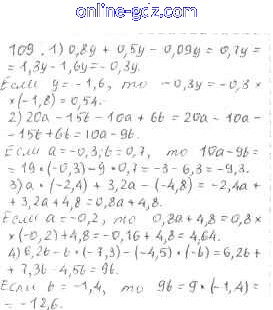 online-gdz.com
109. 1) 0,8y + 0,5y - 0,09y = 0,7y =
= 1,3y - 1,6y = - 0,3y.
Если y = - 1,6, то - 0,3y = - 0,3 ×
× (-1,8) = 0,54.
2) 20a - 15b - 10a + 6b = 20a - 10a -
- 15b + 6b = 10a - 9b.
Если a = -0,3; b = 0,7, то 10a - 9b =
= 19 • (-0,3) - 9 • 0,7 = -3 - 6,3 = -9,3.
3) a • (-2,4) + 3,2a - (-4,8) = -2,4a +
+ 3,2a + 4,8 = 0,8a + 4,8.
Если a = -0,2, то 0,8a + 4,8 = 0,8 ×
× (-0,2) + 4,8 = - 0,16 + 4,8 = 4,64.
4) 6,2b - b • (-7,3) - (-4,5) • (-b) = 6,2b +
+ 7,3b - 4,5b = 9b.
Если b = - 1,4, то 9b = 9 • (-1,4) =
= -12,6.